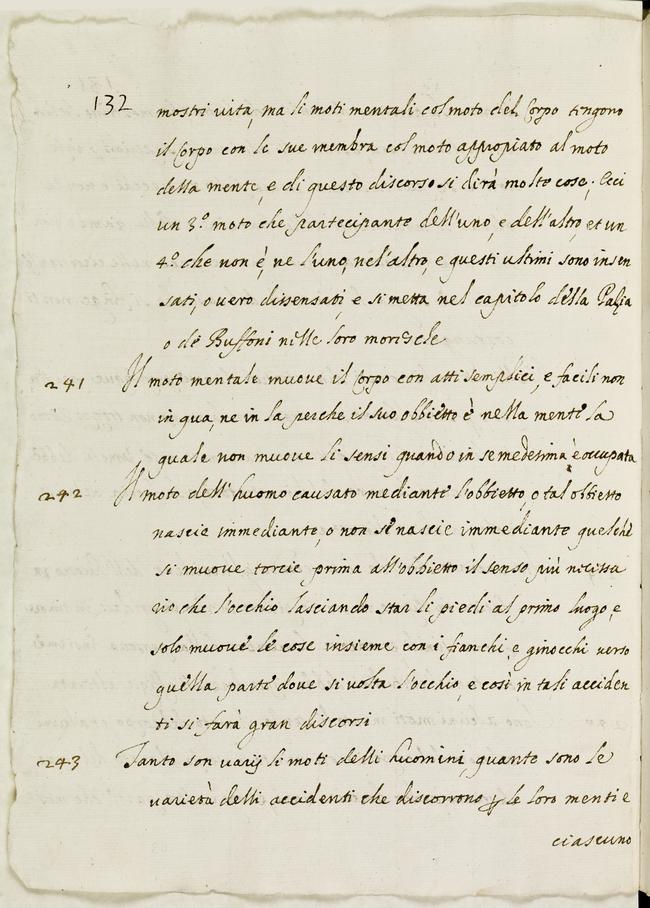 132 mostri vita, ma li moti mentali col moto del Corpo tengono
il Corpo con le sue membra col moto appropiato al moto
della mente, e di questo discorso si dirà molte cose; Ecci
un 3.º moto che partecipante dell'uno, e dell'altro, et un
4.º che non è, ne l'uno, nel'altro, e questi ultimi sono insen
sati, o vero dissensati, e si metta nel capitolo della Pazia
o de Buffoni nelle loro moresche
241 Il moto mentale muove il Corpo con atti semplici, e facili non
in qua, ne in la perche il suo obbietto è nella mente la
quale non muove li sensi quando in se medesima è occupata
242 Il moto dell'huomo causato mediante l'obbietto, o tal obbietto
nascie immediante, o non se nascie immediante quelche
si muove torcie prima all'obbietto il senso più necessa
rio che l'occhio lasciando star li piedi al primo luogo, e
solo muove le cose insieme con i fianchi, e ginocchi verso
quella parte dove si volta l'occhio, e così in tali acciden
ti si farà gran discorsi
243 Tanto son varij li moti delli huomini, quante sono le
varietà delli accidenti che discorrono p le loro menti e
ciascuno